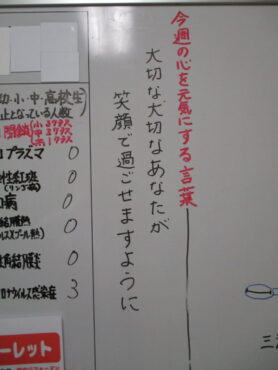 今週の心を元気にする言葉
大切な大切なあなたが
笑顔で過ごせますように
幼・小・中・高校生)
止となっている人数
閉鎖(小3クラス
中3クラス
プラズマ 0
(リンゴ病) 0
病 0
結膜熱
プール熱) 0
角結膜炎 0
ロナウイルス感染症 3
ーレット
三